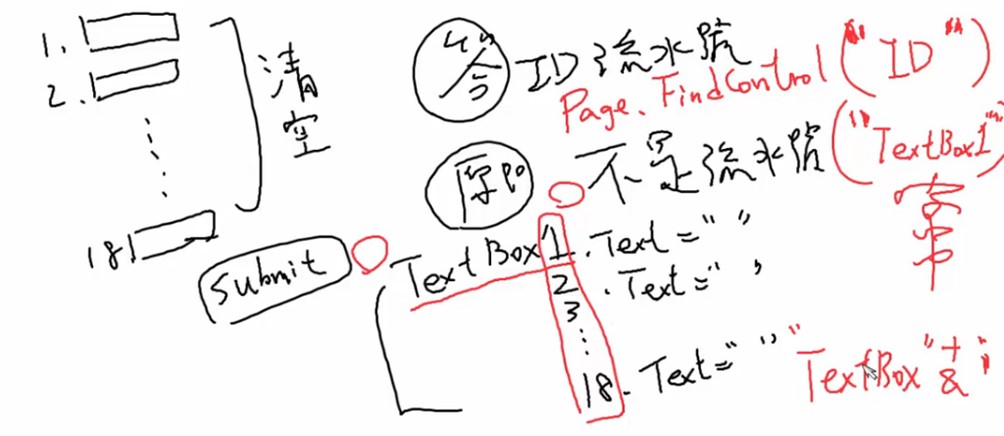 1.
2.
18
清空
ID流水號
Page.FindControl("ID")
不是流水號
("TextBox1")
字串
submit
TextBox1.Text=" "
2.Text=" "
3
18.Text=" "
"TextBox"+
&i